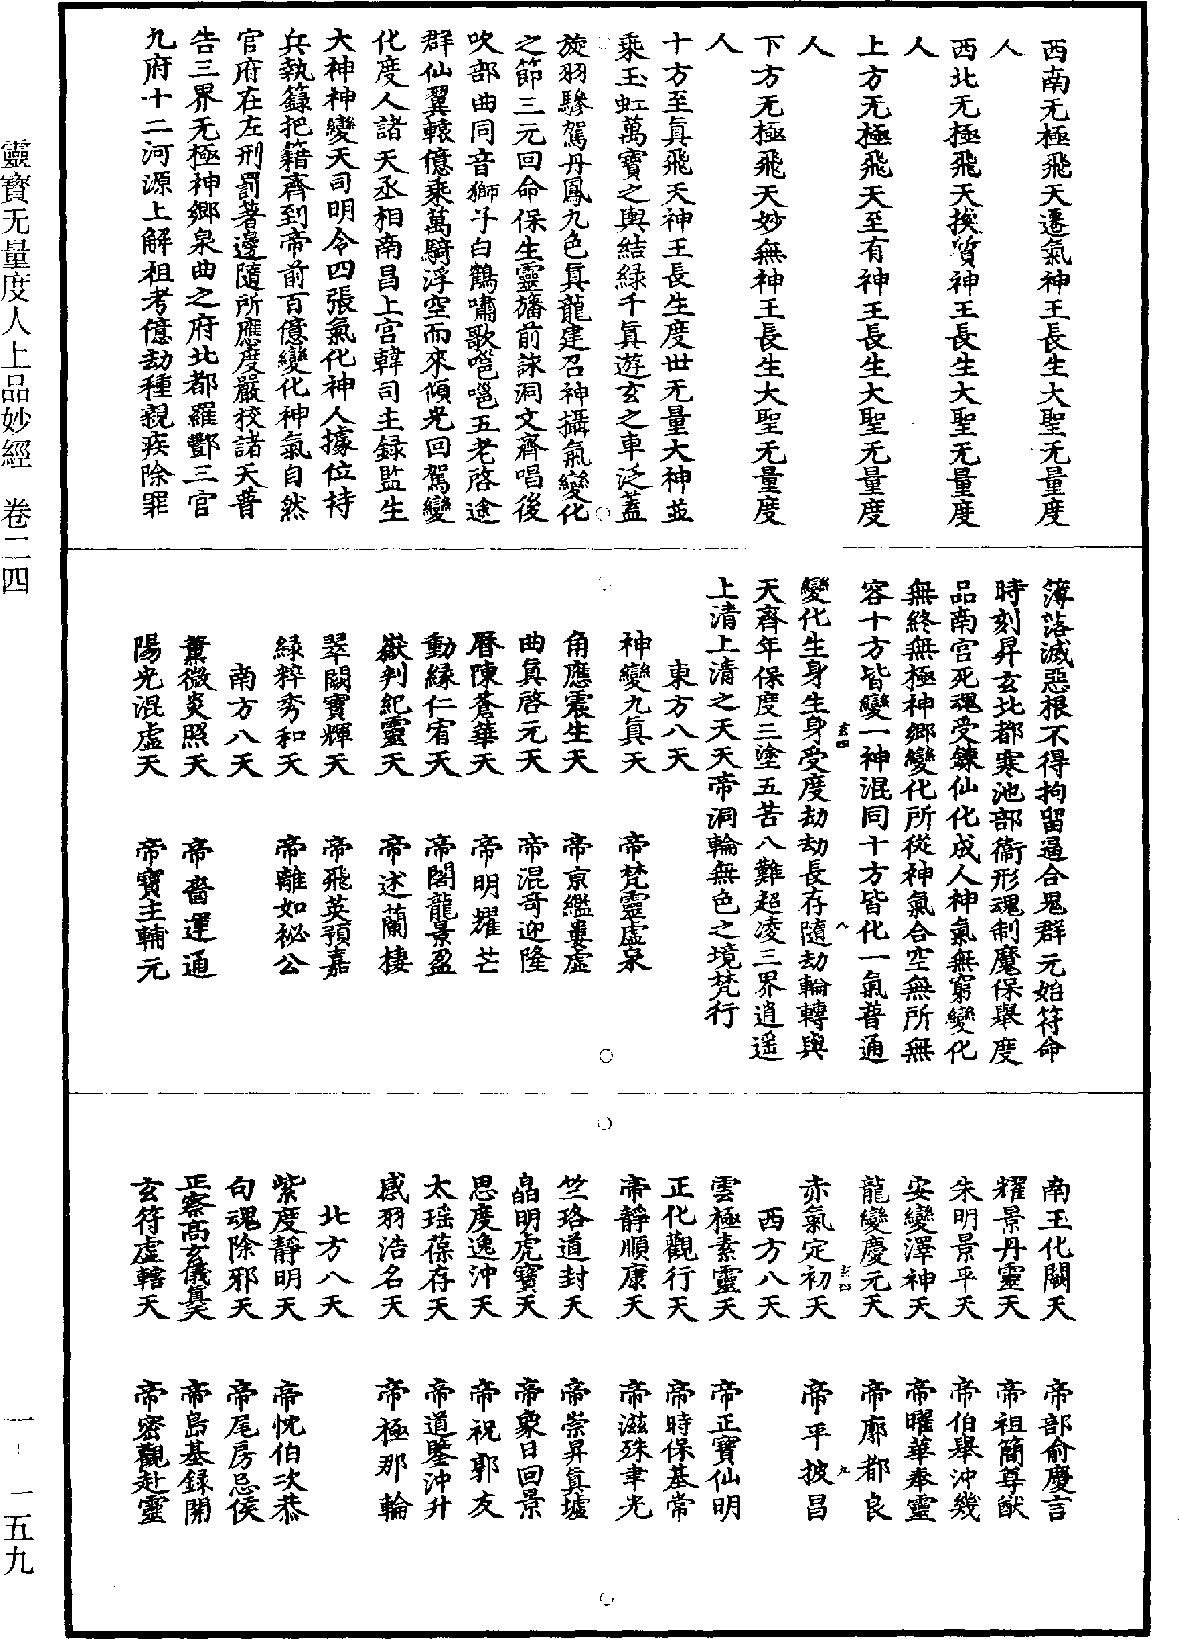 西南无極飛天遷氣神王長生大聖无量度
人
西北无極飛天挨質神王長生大聖无量度
人
上方无極飛天至有神王長生大聖无量度
人
下方无極飛天妙無神王長生大聖无量度
人
十方至真飛天神王長生度世无量大神並
乘玉虹萬寶之輿結緑千真遊玄之車泛蓋
旋羽驂駕丹鳳九色真龍建召神攝氣變化
之節三元回命保生靈旛前誄洞文齊唱後
吹部曲同音獅子白鶴嘯歌嗈嗈五老啓途
群仙翼轅億乘萬騎浮空而來傾光回駕變
化度人諸天丞相南昌上宫韓司主録監生
大神神變天司明令四張氣化神人據位持
兵執籙把籍齊到帝前百億變化神氣自然
官府在左刑罰著邊隨所應度嚴校諸天普
告三界无極神鄉泉曲之府北都羅酆三官
九府十二河源上解祖考億劫種親疾除罪
簿落滅惡根不得拘留逼合鬼群元始符命
時刻昇玄北都寒池部衛形魂制魔保舉度
品南宫死魂受鍊仙化成人神氣無窮變化
無終無極神鄉變化所從神氣合空無所無
容十方皆變一神混同十方皆化一氣普通
玄四 八
變化生身生身受度劫劫長存隨劫輪轉與
天齊年保度三塗五苦八難超凌三界逍遥
上清上清之天天帝洞輪無色之境梵行
東方八天
神變九真天 帝梵靈虛泉
角應震生天 帝京繿婁虛
曲真啓元天 帝混奇迎隆
曆陳蒼華天 帝明耀芒
動緣仁宥天 帝閣龍景盈
嶽列紀靈天 帝述蘭棲
翠闕寶輝天 帝飛英預嘉
緑粹秀和天 帝離如祕公
南方八天
薰微炎照天 帝嗇運通
陽光混虛天 帝寶主輔元
南玉化關天 帝部俞慶言
耀景丹靈天 帝祖簡尊猷
朱明景平天 帝伯舉沖幾
安變澤神天 帝曜華奉靈
龍變慶元天 帝廓都良
玄四 九
赤氣定初天 帝平披昌
西方八天
雲極素靈天 帝正寶仙明
正化觀行天 帝時保基常
帝靜順康天 帝滋殊聿光
竺珞道封天 帝崇昇真墟
皛明虎寶天 帝象日回景
思度逸沖天 帝祝郭友
太瑶葆存天 帝道鑒沖升
感羽浩名天 帝極那輪
北方八天
紫度靜明天 帝忱伯次恭
句魂除邪天 帝尾房忌侯
正察高玄儀真天 帝島基録開
玄符虛轄天 帝密觀赴靈
靈寶无量度人上品妙經 卷二四 一–一五九